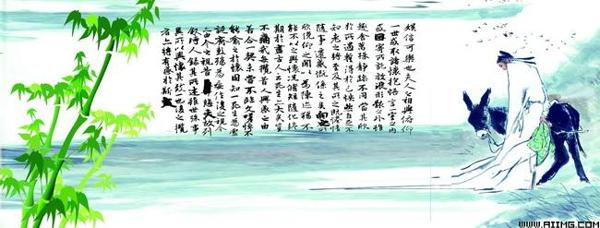 娛信可樂也夫人之相與俯仰
一世或取諸懷抱悟言一室之內
或因寄所託放浪形骸之外雖
趣舍萬殊靜躁不同當其欣
於所遇暫得於己快然自足不
知老之將至及其所之既惓情
隨事遷感慨係之矣向之所
欣俛仰之間以為陳迹猶不
能不以之興懷況脩短隨化終
期於盡古人云死生亦大矣豈
不痛哉每攬昔人興感之由
若合一契未嘗不臨文嗟悼不
能喻之於懷固知一死生為虛
誕齊彭殤為妄作後之視今
亦由今之視昔悲夫故列
敘時人錄其所述雖世殊事
異所以興懷其致一也後之攬
者亦將有感於斯文
WWW.AIIMG.COM